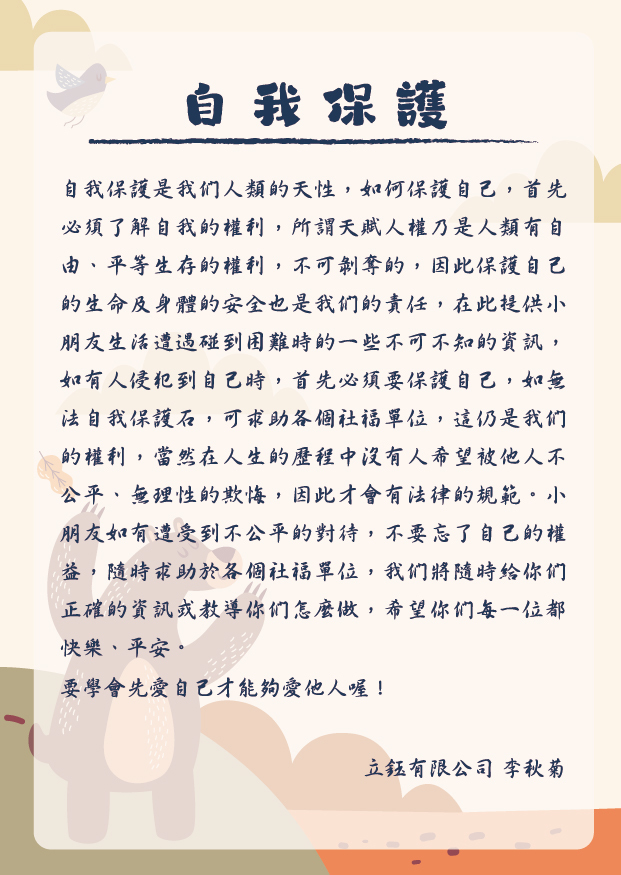 自我保護
自我保護是我们人類的天性，如何保護自己，首先
必須了解自我的權利，所謂天賦人權乃是人類有自
由、平等生存的權利，不可剝奪的，因此保護自己
的生命及身體的安全也是我们的責任，在此提供小
朋友生活遭遇碰到困難時的一些不可不知的資訊，
如有人侵犯到自己時，首先必須要保護自己，如無
法自我保護石，可求助各個社福單位，這仍是我们
的權利，當然在人生的歷程中沒有人希望被他人不
公平、無理性的欺悔，因此才會有法律的規範。小
朋友如有遭受到不公平的對待，不要忘了自己的權
益，隨時求助於各個社福單位，我们將隨時給你们
正確的資訊或教導你们怎麼做，希望你们每一位都
快樂、平安。
要學會先愛自己才能夠愛他人喔！
立鈺有限公司 李秋菊